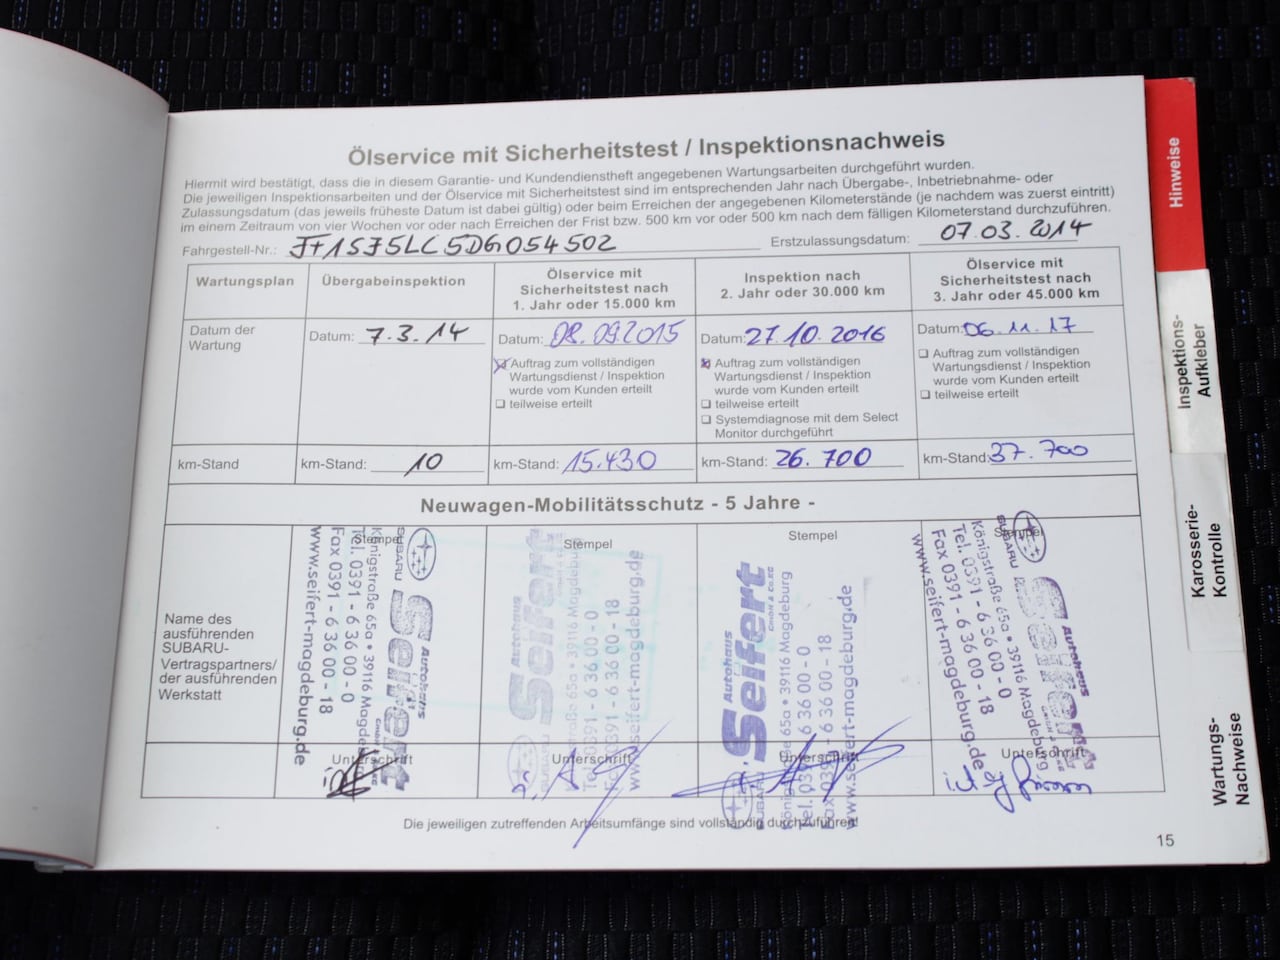 Ölservice mit Sicherheitstest / Inspektionsnachweis
Hiermit wird bestätigt, dass die in diesem Garantie- und Kundendienstheft angegebenen Wartungsarbeiten durchgeführt wurden.
Die jeweiligen Inspektionsarbeiten und der Ölservice mit Sicherheitstest sind im entsprechenden Jahr nach Übergabe-, Inbetriebnahme- oder
Zulassungsdatum (das jeweils früheste Datum ist dabei gültig) oder beim Erreichen der angegebenen Kilometerstände (je nachdem was zuerst eintritt)
im einem Zeitraum von vier Wochen vor oder nach Erreichen der Frist bzw. 500 km vor oder 500 km nach dem fälligen Kilometerstand durchzuführen.
Fahrgestell-Nr.: JF1SJ5LC5DG054502 Erstzulassungsdatum: 07.03.2014
Wartungsplan
Übergabeinspektion
Ölservice mit
Sicherheitstest nach
1. Jahr oder 15.000 km
Inspektion nach
2. Jahr oder 30.000 km
Ölservice mit
Sicherheitstest nach
3. Jahr oder 45.000 km
Datum der
Wartung
Datum: 7.3.14
Datum: 08.09.2015
Auftrag zum vollständigen
Wartungsdienst / Inspektion
wurde vom Kunden erteilt
teilweise erteilt
Datum: 27.10.2016
Auftrag zum vollständigen
Wartungsdienst / Inspektion
wurde vom Kunden erteilt
teilweise erteilt
Systemdiagnose mit dem Select
Monitor durchgeführt
Datum: 06.11.17
Auftrag zum vollständigen
Wartungsdienst / Inspektion
wurde vom Kunden erteilt
teilweise erteilt
km-Stand
km-Stand: 10
km-Stand: 15.430
km-Stand: 26.700
km-Stand: 37.700
Neuwagen-Mobilitätsschutz - 5 Jahre -
Name des
ausführenden
SUBARU-
Vertragspartners/
der ausführenden
Werkstatt
Stempel
SUBARU
Autohaus
Seifert
GmbH & Co.KG
Königstraße 65a • 39116 Magdeburg
Tel. 0391 - 6 36 00 - 0
Fax 0391 - 6 36 00 - 18
www.seifert-magdeburg.de
Unterschrift
Stempel
SUBARU
Autohaus
Seifert
Königstraße 65a • 39116 Magdeburg
Tel. 0391 - 6 36 00 - 0
Fax 0391 - 6 36 00 - 18
www.seifert-magdeburg.de
Unterschrift
Stempel
SUBARU
Autohaus
Seifert
GmbH & Co.KG
Königstraße 65a • 39116 Magdeburg
Tel. 0391 - 6 36 00 - 0
Fax 0391 - 6 36 00 - 18
www.seifert-magdeburg.de
Unterschrift
Stempel
SUBARU
Autohaus
Seifert
GmbH & Co.KG
Königstraße 65a • 39116 Magdeburg
Tel. 0391 - 6 36 00 - 0
Fax 0391 - 6 36 00 - 18
www.seifert-magdeburg.de
Unterschrift
Die jeweiligen zutreffenden Arbeitsumfänge sind vollständig durchzuführen!
15
Hinweise
Inspektions-
Aufkleber
Karosserie-
Kontrolle
Wartungs-
Nachweise